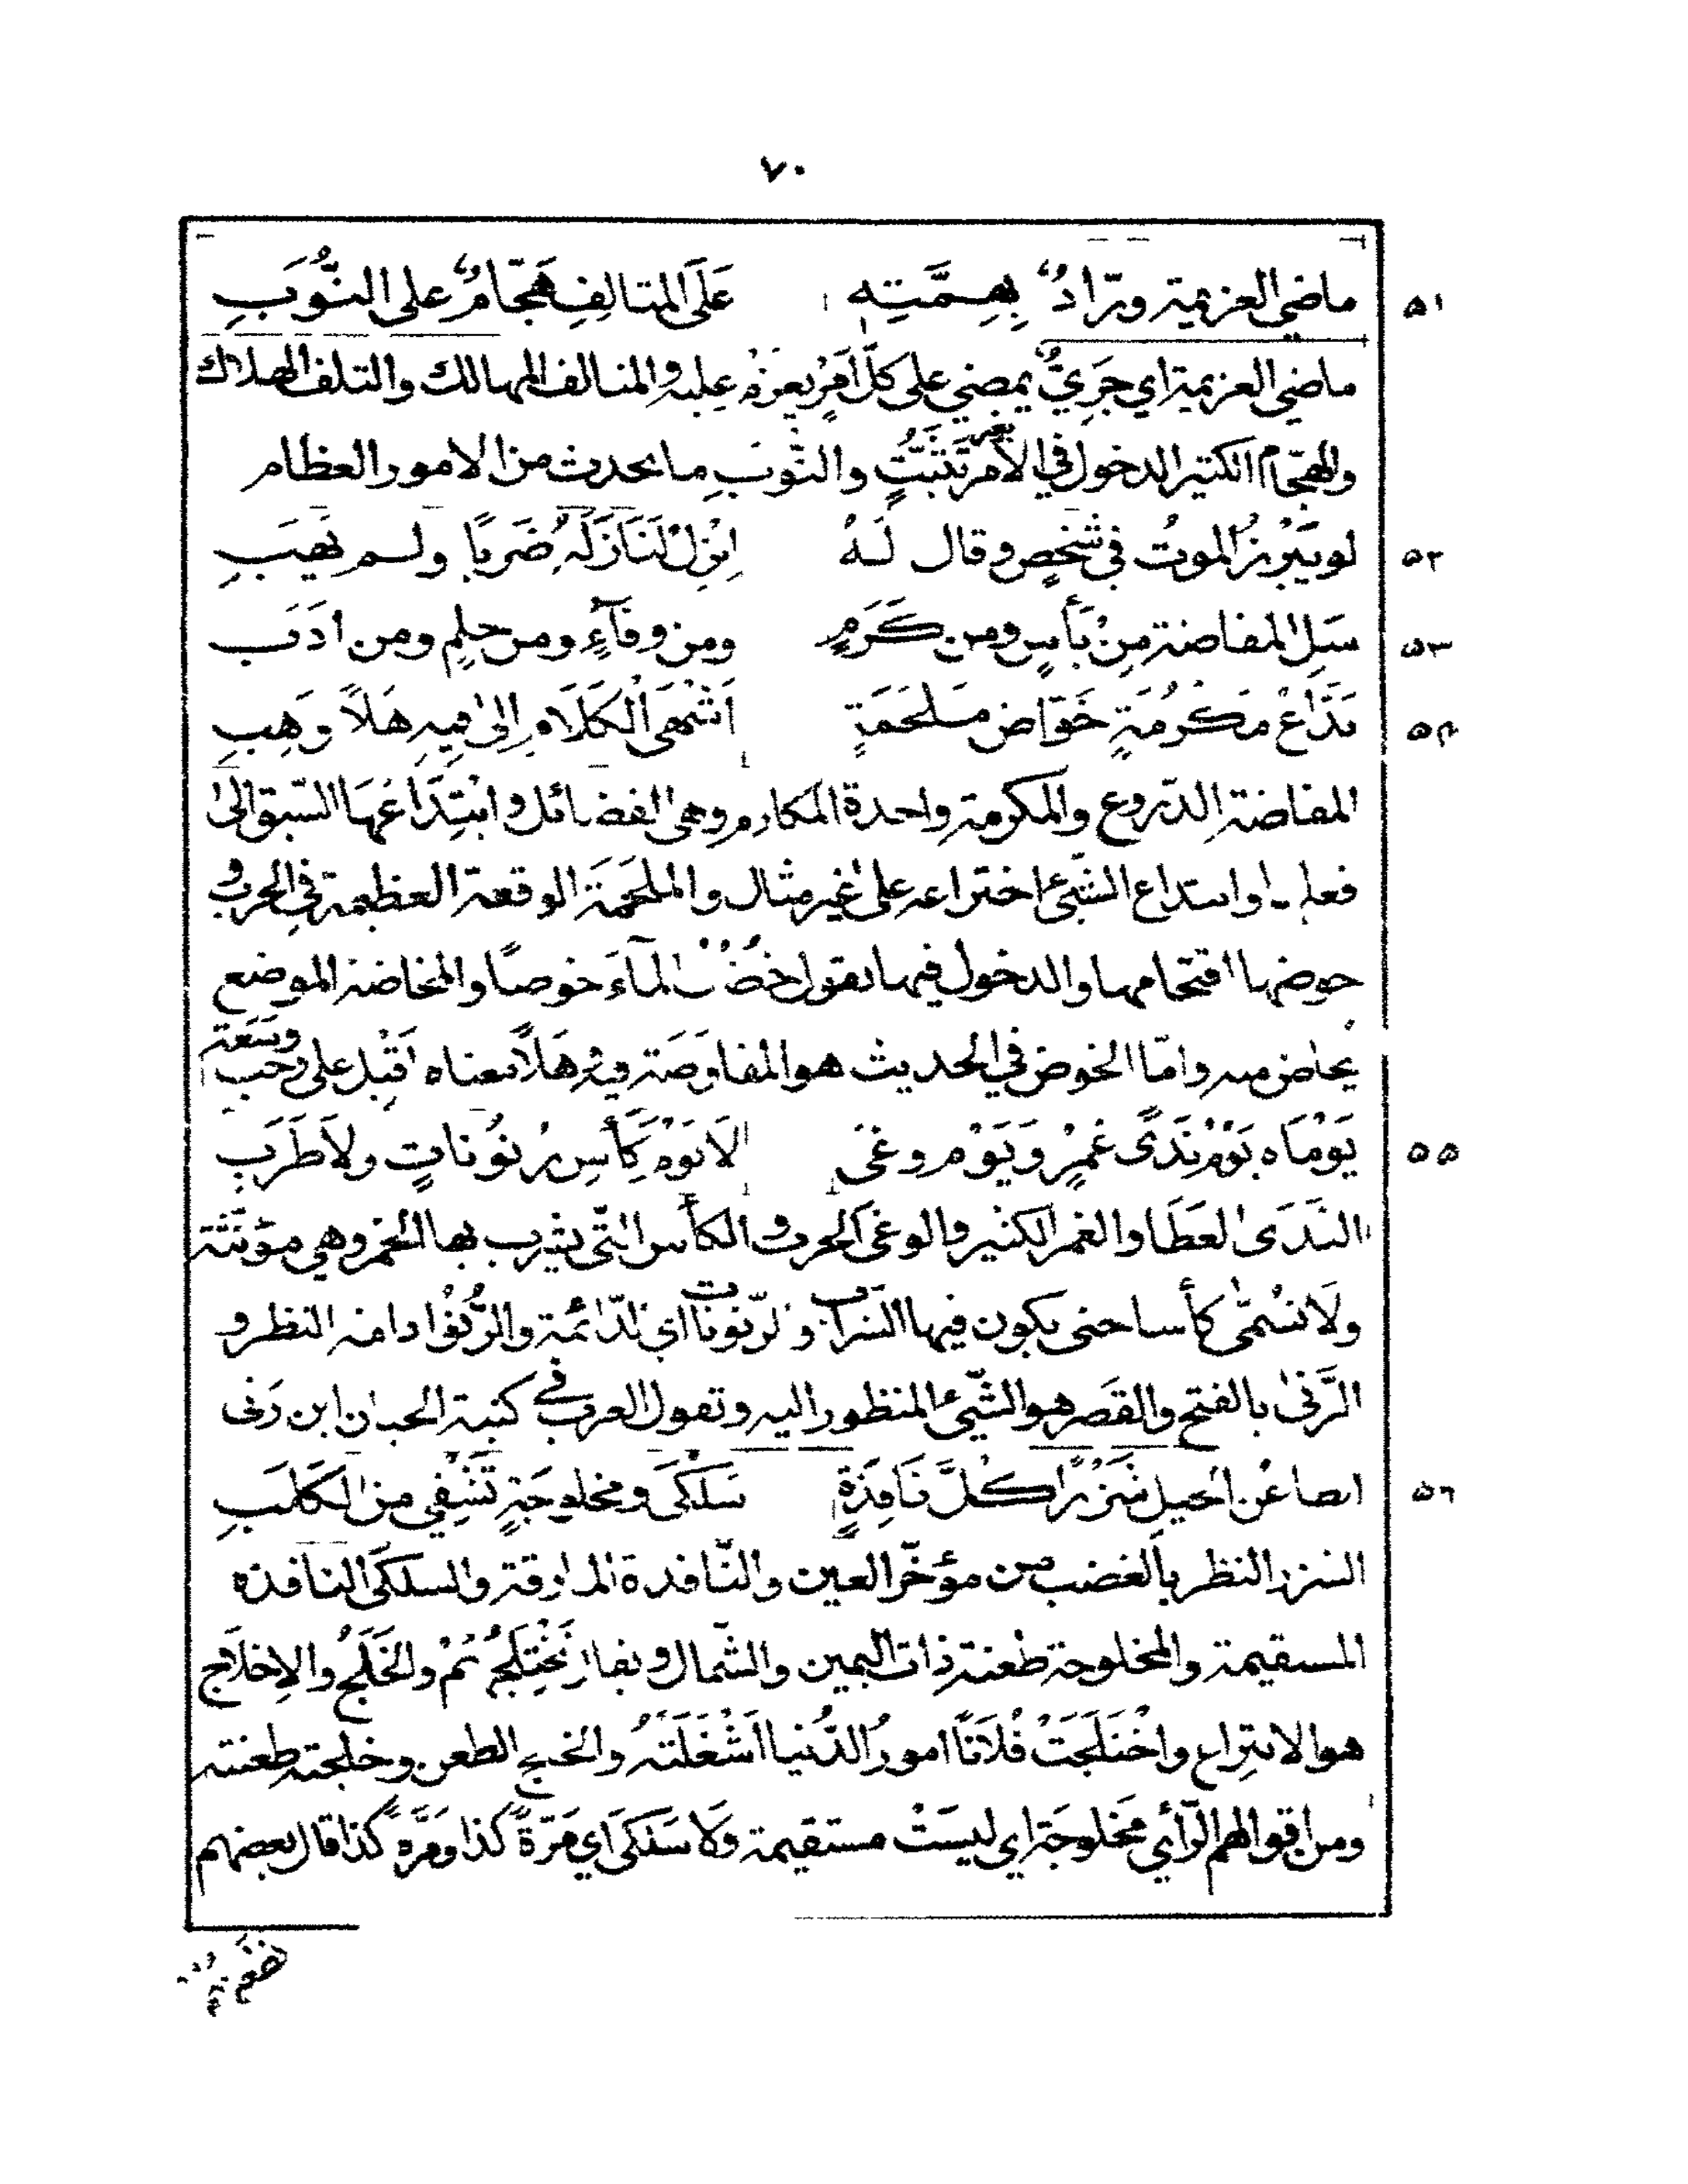 ٧٠
٥١ ماضي العزيمة ورّادٌ بِهِمَّتِه عَلَى المتالِفِ هَجّامٌ على النُّوَبِ
ماضي العزيمة اي جَرِيٌّ يمضي على كلّ اَمْرٍ يعزم عليه والمتالف المهالك والتلف الهلاك
والهجّام الكثير الدخول في الأمر بغير تَثَبُّتٍ والنُّوَبِ ما يحدث من الامور العظام
٥٢ لو يَبْرُزُ الموتُ في شَخْصٍ وقال لَهُ اِنْزِلْ لَنَازَلَهُ ضَربًا ولم يَهَبِ
٥٣ سَلِ المفاضة مِنْ بَأسٍ ومن كَرَمٍ ومن وفآءٍ ومن حلمٍ ومن اَدَبِ
٥٤ بَدَّاعُ مَكْرُمَةٍ خَوّاض مَلحَمَةٍ اَشْهَى الْكَلَامِ اِلىٰ فيهِ هَلاً وَهِبِ
المفاضة الدّروع والمكرمة واحدة المكارم وهي الفضائل وابْتِدَاعُهَا السّبق الىٰ
فعلها وابتداع الشّيء اختراعه علىٰ غير مثال والملحَمَة الوقعة العظيمة في الحرب و
خوضها اقتحامها والدخول فيها يقول خُضْتُ المآءَ خوضًا والمخاضة الموضع
يخاض منه وامّا الخوض في الحديث هو المفاوَضَة فيه هَلاً معناه اَقْبِل على رحب وسَعَة
٥٥ يَوْمَاه يَوْمُ نَدًى غَمْرٍ وَيَوْم وغىً لَا يَوْمُ كَأسٍ رَنُونَاتٍ ولاَ طَرَبِ
النَّدَى العَطَا والغمر الكثير والوغَى الحرب والكأس الّتي يشرب بها الخمر وهي مؤنّثة
ولَا تسُمّى كأسا حتى يكون فيها الشراب والرّنونات اي الدّائمة والرُّنُوْ ادامة النظر و
الرَّنىٰ بالفتح والقَصر هو الشّيء المنظور اليه وتقول العرب في كنية الجبان ابن رَنى
٥٦ الخيل شَزْرًا كُلَّ نَافِذَةٍ سَلْكَى ومخلوجَةٍ تَشْفِي من الكَلَبِ
الشزر النظر بالغضب من مؤخّر العين والنّافذة المارقة والسلكَى النافذه
المستقيمة والمخلوجة طعنة ذات اليمين والشّمال والخَلْجُ والاِختلَاج
هو الانتِزاع واخْتَلَجَتْ فُلَانًا امورُ الدُّنيا اَشْغَلَتْهُ والخلج الطعن وخلجته طعنته
ومن اقوالهم الرّأي مَخلوجَة اي ليسَتْ مستقيمة ولا سَلكَى اي مَرّةً كذا ومَرّةً كذا قال بعضهم